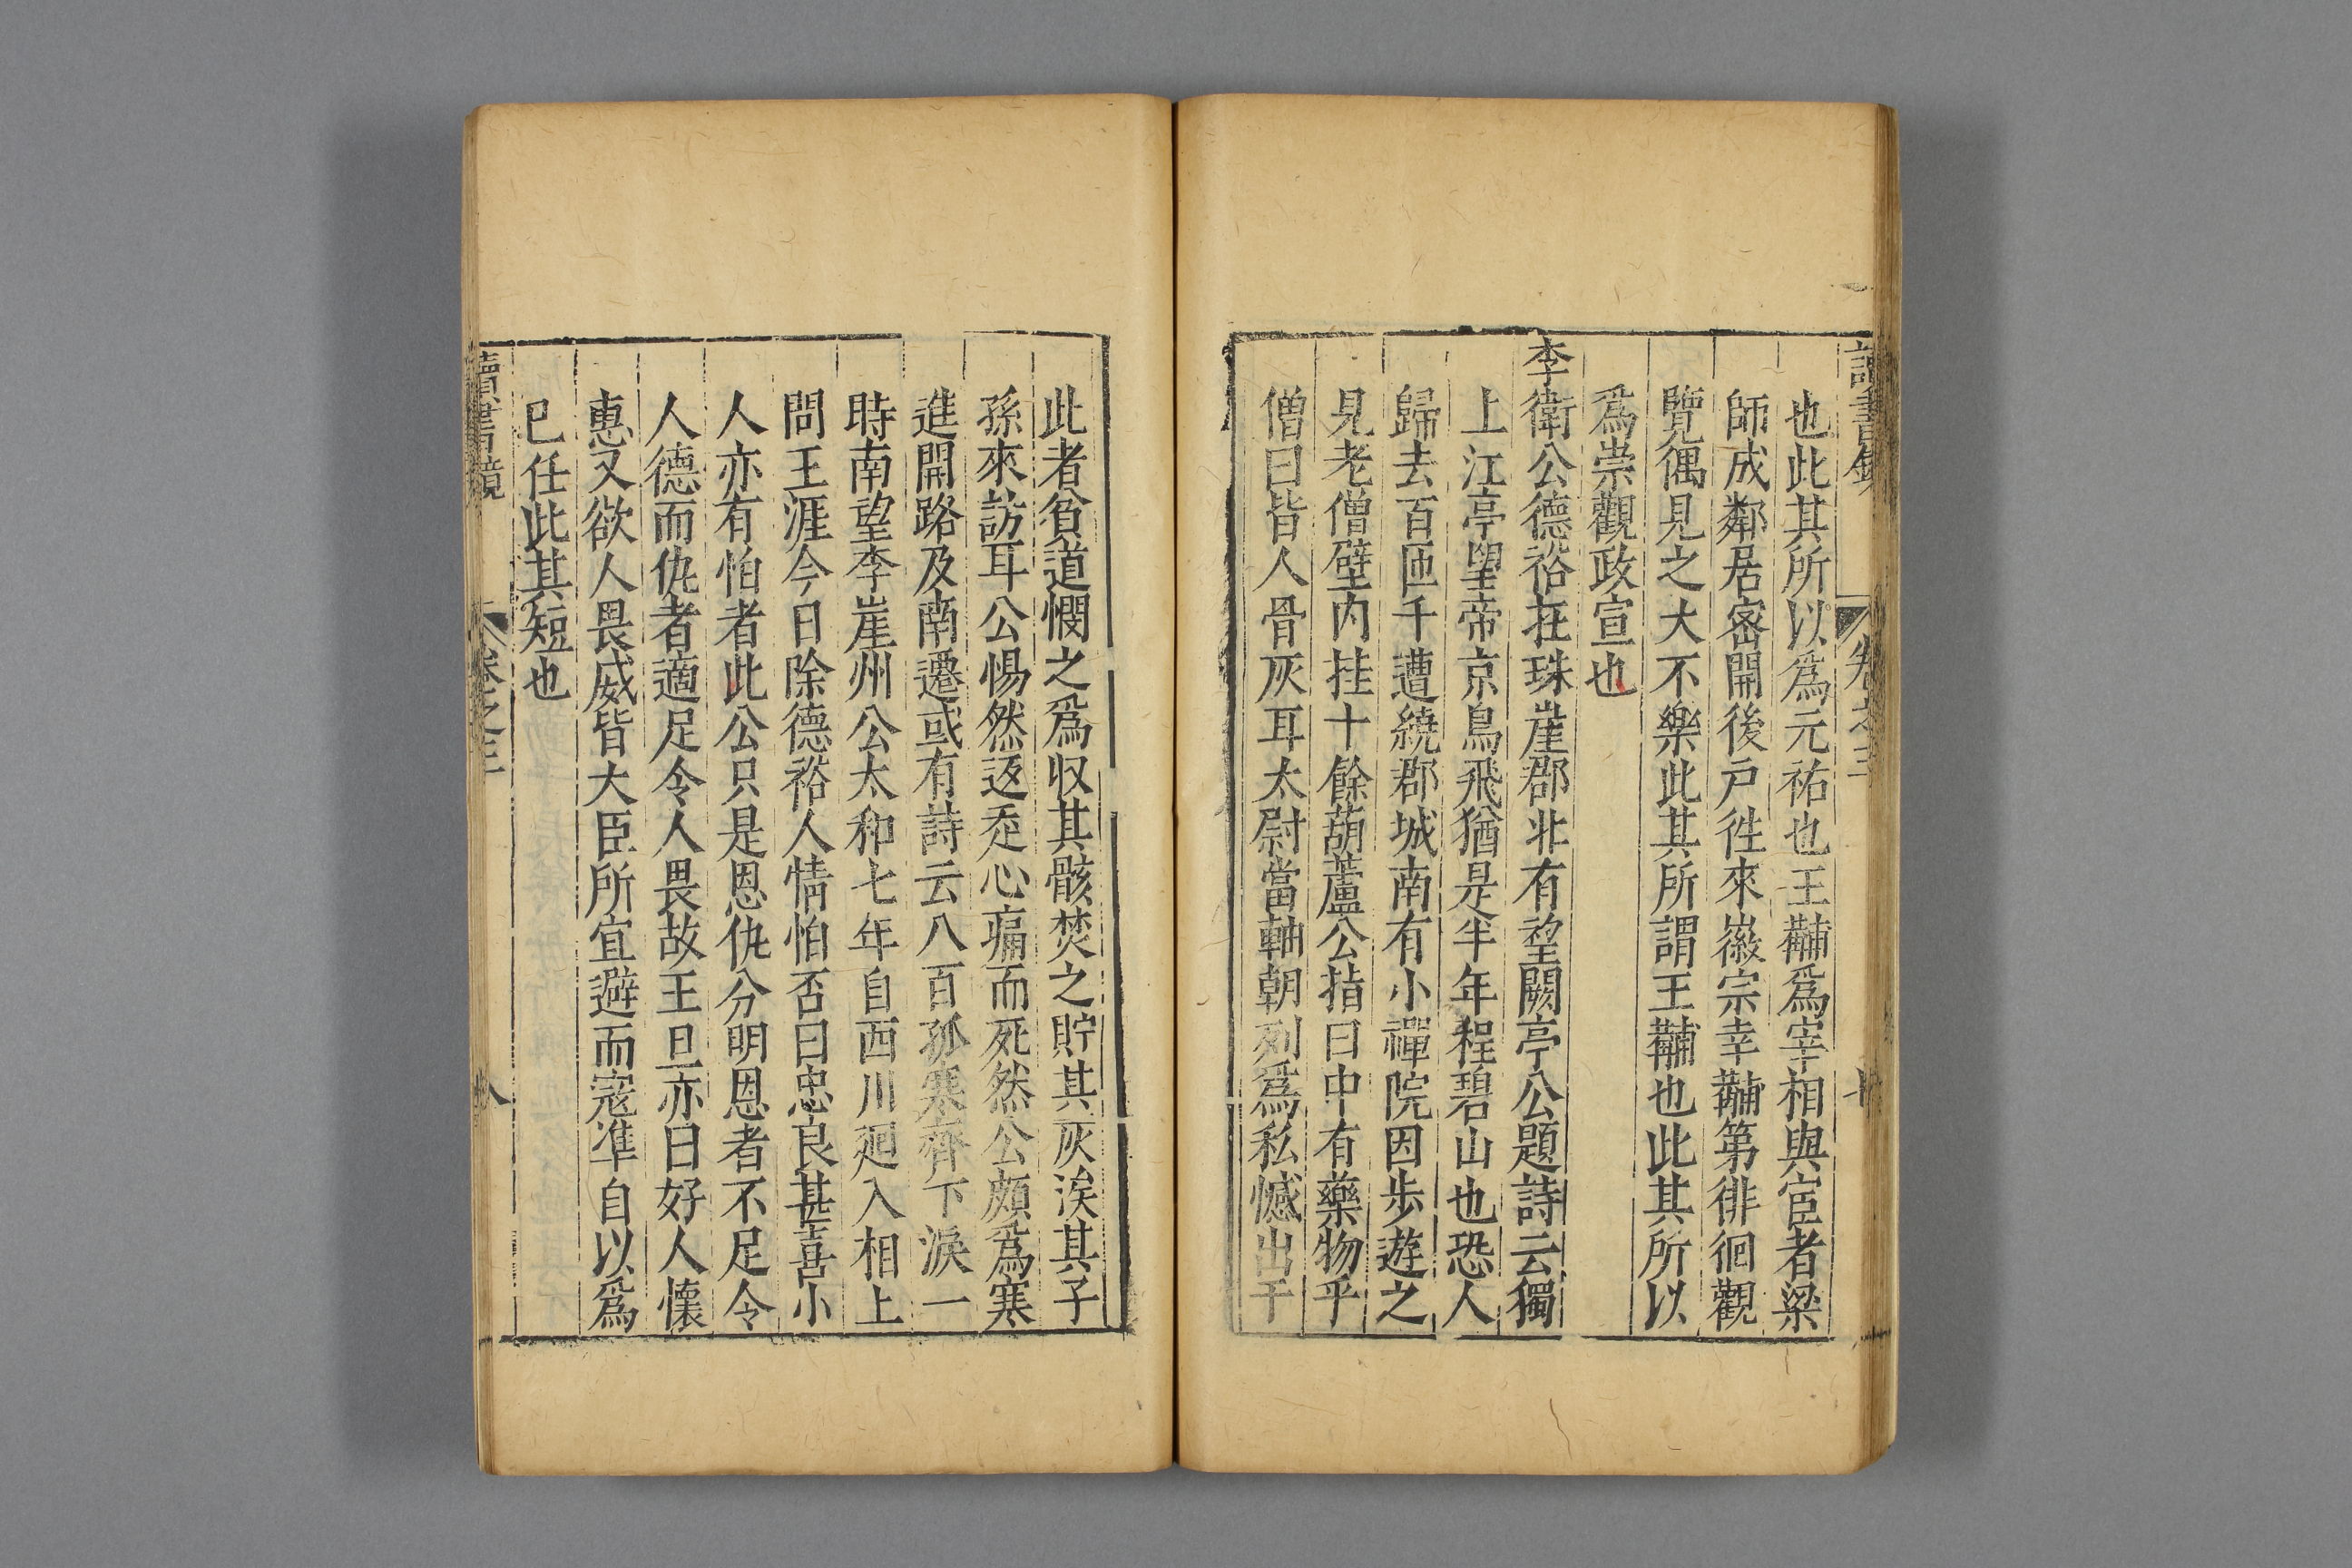 讀書鏡 卷之三
也此其所以爲元祐也王黼爲宰相與宦者梁
師成鄰居密開後戸徃來徽宗幸黼第徘徊觀
覽偶見之大不樂此其所謂王黼也此其所以
爲崇觀政宣也
李衛公德裕在珠崖郡北有望闕亭公題詩云獨
上江亭望帝京鳥飛猶是半年程碧山也恐人
歸去百匝千遭繞郡城南有小禪院因步遊之
見老僧壁内挂十餘葫蘆公指曰中有藥物乎
僧曰皆人骨灰耳太尉當軸朝列爲私憾出于
此者貧道憫之爲収其骸焚之貯其灰俟其子
孫來訪耳公惕然返走心痛而死然公頗爲寒
進開路及南遷或有詩云八百孤寒齊下淚一
時南望李崖州公太和七年自西川廻入相上
問王涯今日除德裕人情怕否曰忠良甚喜小
人亦有怕者此公只是恩仇分明恩者不足令
人德而仇者適足令人畏故王旦亦曰好人懷
惠又欲人畏威皆大臣所宜避而寇準自以爲
已任此其短也
讀書鏡 卷之三 八